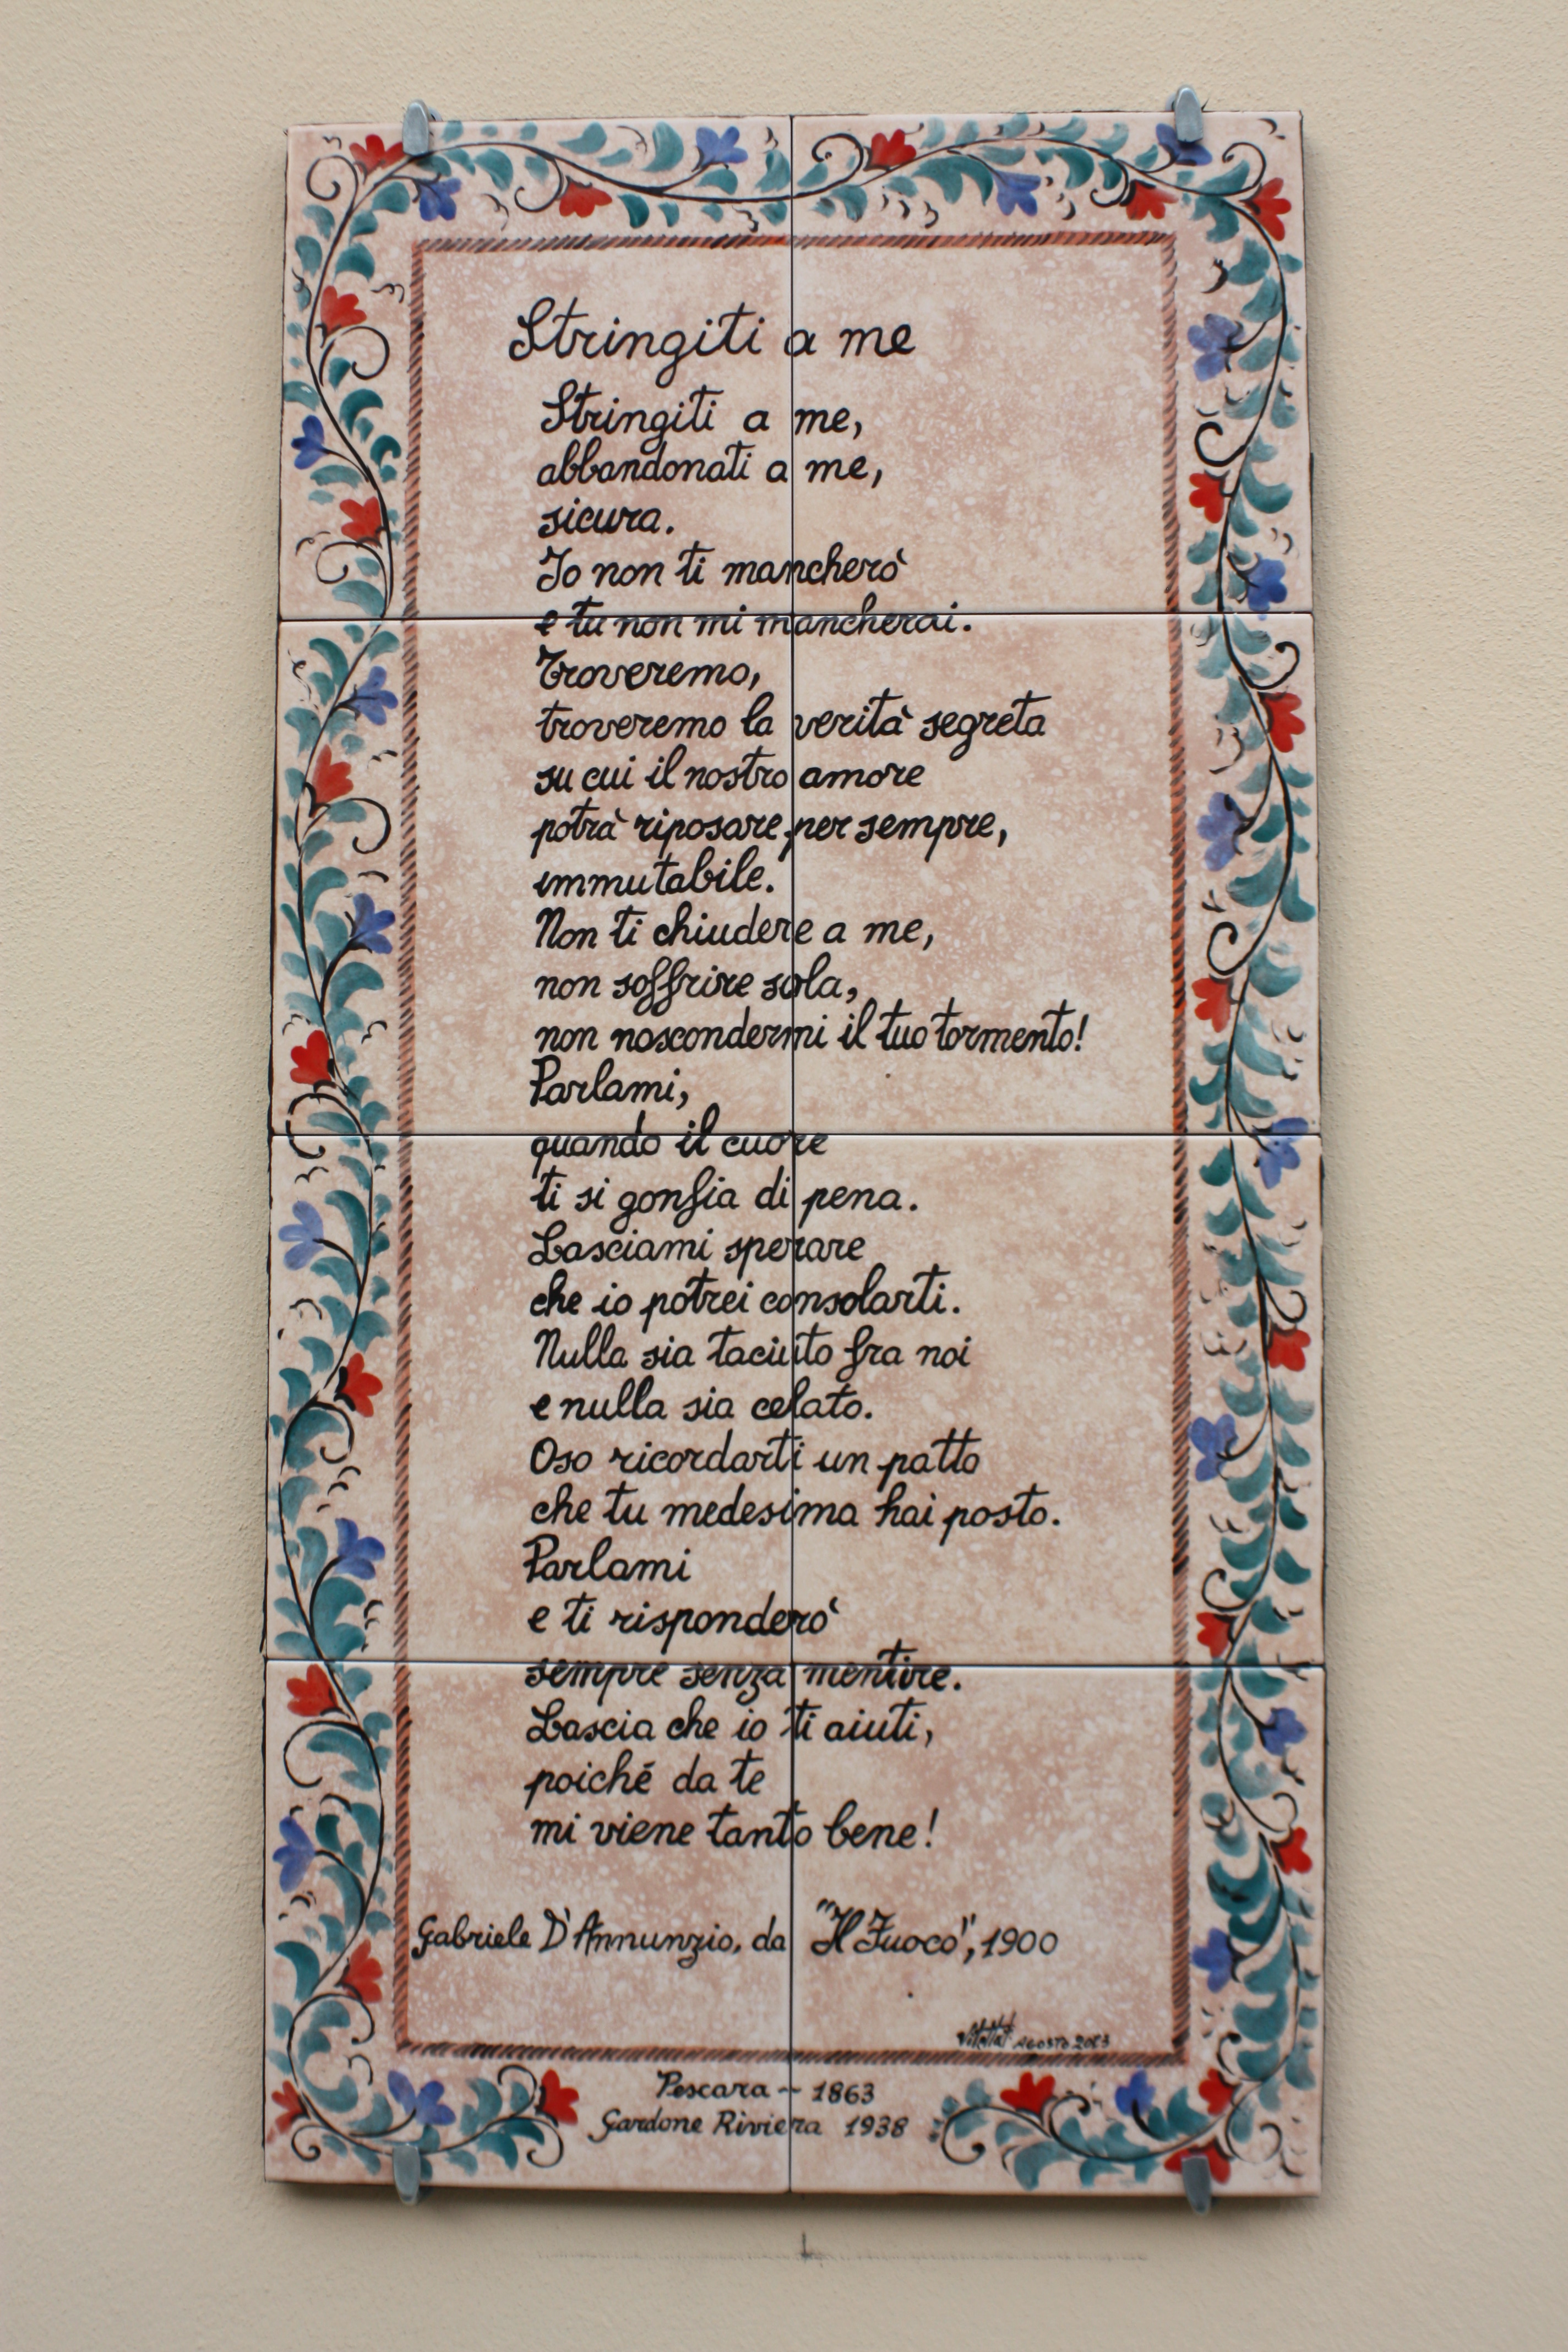 Stringiti a me
Stringiti a me,
abbandonati a me,
sicura.
Io non ti mancherò
e tu non mi mancherai.
Troveremo,
troveremo la verità segreta
su cui il nostro amore
potrà riposare per sempre,
immutabile.
Non ti chiudere a me,
non soffrire sola,
non nascondermi il tuo tormento!
Parlami,
quando il cuore
ti si gonfia di pena.
Lasciami sperare
che io potrei consolarti.
Nulla sia taciuto fra noi
e nulla sia celato.
Oso ricordarti un patto
che tu medesima hai posto.
Parlami
e ti risponderò
sempre senza mentire.
Lascia che io ti aiuti,
poiché da te
mi viene tanto bene!
Gabriele D'Annunzio, da "Il Fuoco", 1900
AGOSTO
Pescara ~ 1863
Gardone Riviera 1938